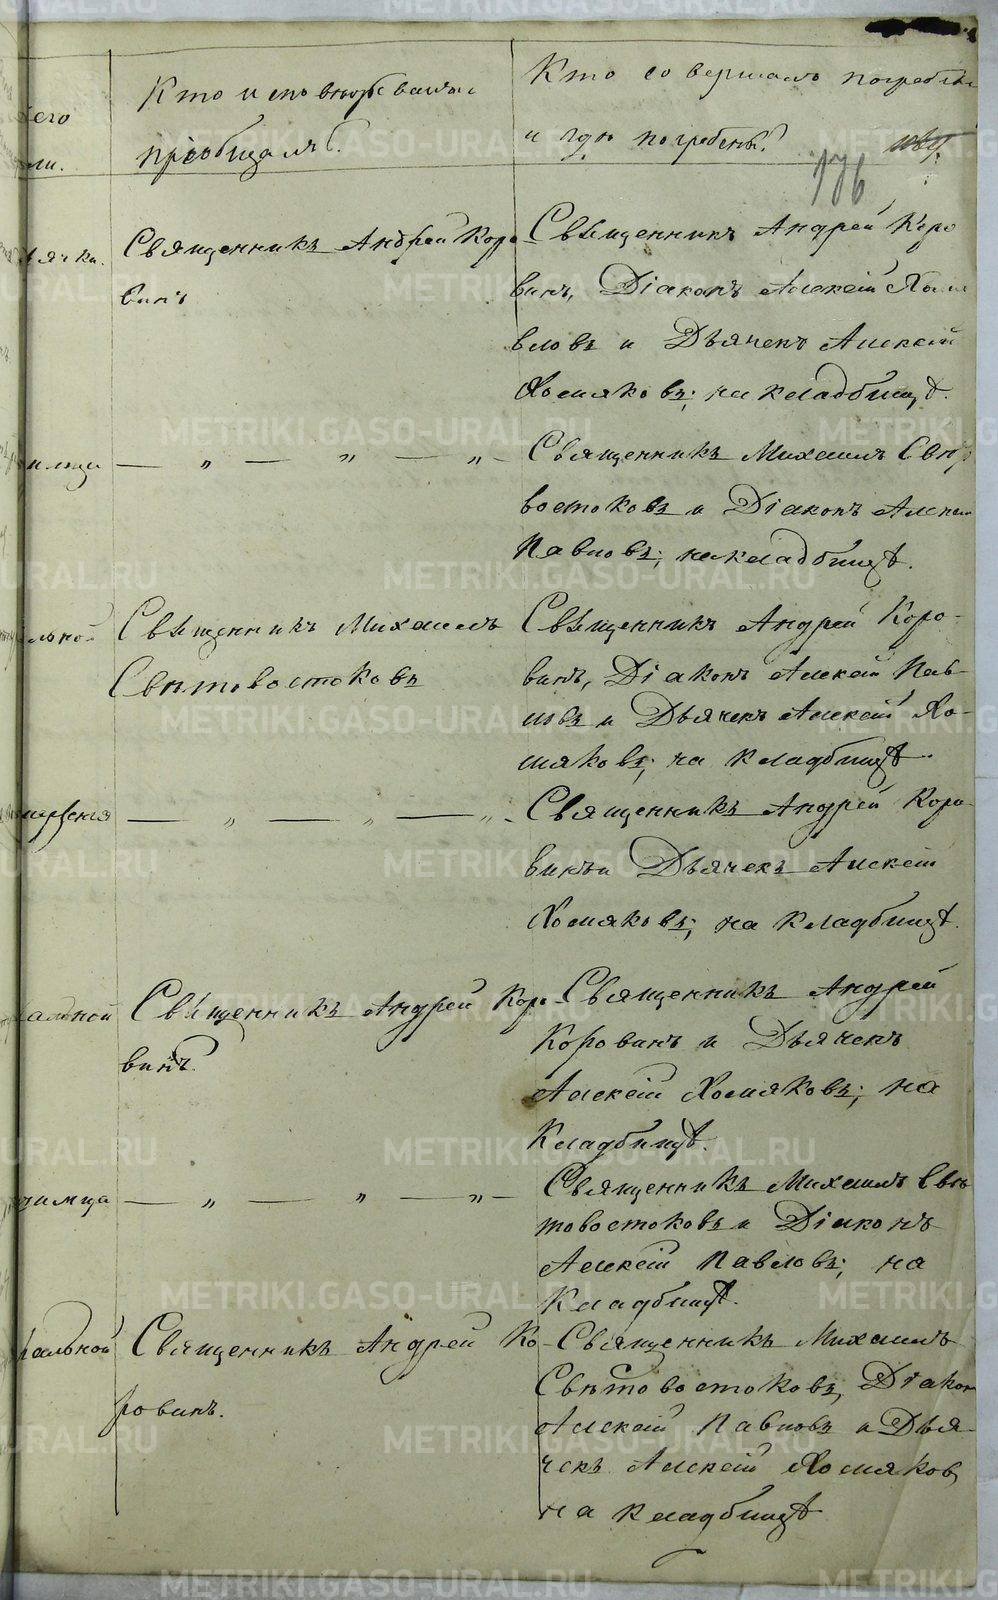 его
ли.
Кто исповѣдывалъ и
пріобщалъ?
Кто совершалъ погребеніе
и гдѣ погребены?
176
Священникъ Андрей Коро-
винъ
Священникъ Андрей Коро
винъ, Діаконъ Алексѣй Пав
ловъ и Дьячекъ Алексѣй
Хомяковъ; на кладбищѣ.
— „ — „ — „ —
Священникъ Михаилъ Свѣто
востоковъ и Діаконъ Алексѣй
Павловъ; на кладбищѣ.
альной
Священникъ Михаилъ
Свѣтовостоковъ
Священникъ Андрей Коро-
винъ, Діаконъ Алексѣй Пав-
ловъ и Дьячекъ Алексѣй Хо-
мяковъ; на кладбищѣ.
— „ — „ — „ -
Священникъ Андрей Коро-
винъ и Дьячекъ Алексѣй
Хомяковъ; на кладбищѣ.
альной
Священникъ Андрей Коро-
винъ.
Священникъ Андрей
Коровинъ и Дьячекъ
Алексѣй Хомяковъ; на
кладбищѣ.
— „ — „ — „ —
Священникъ Михаилъ Свѣ
товостоковъ и Діаконъ
Алексѣй Павловъ; на
кладбищѣ.
ральной
Священникъ Андрей Ко-
ровинъ.
Священникъ Михаилъ
Свѣтовостоковъ, Діаконъ
Алексѣй Павловъ и Дья-
чекъ Алексѣй Хомяковъ,
на кладбищѣ
METRIKI.GASO-URAL.RU